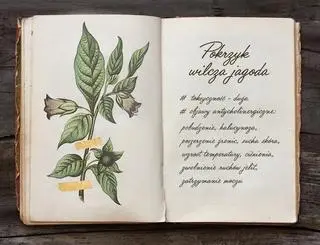 Pokrzyk
wilcza jagoda
# toksyczność - duża
# objawy antycholinergiczne:
pobudzenie, halucynoza,
poszerzenie źrenic, sucha skóra,
wzrost temperatury, ciśnienia,
zwolnienie ruchów jelit,
zatrzymanie moczu